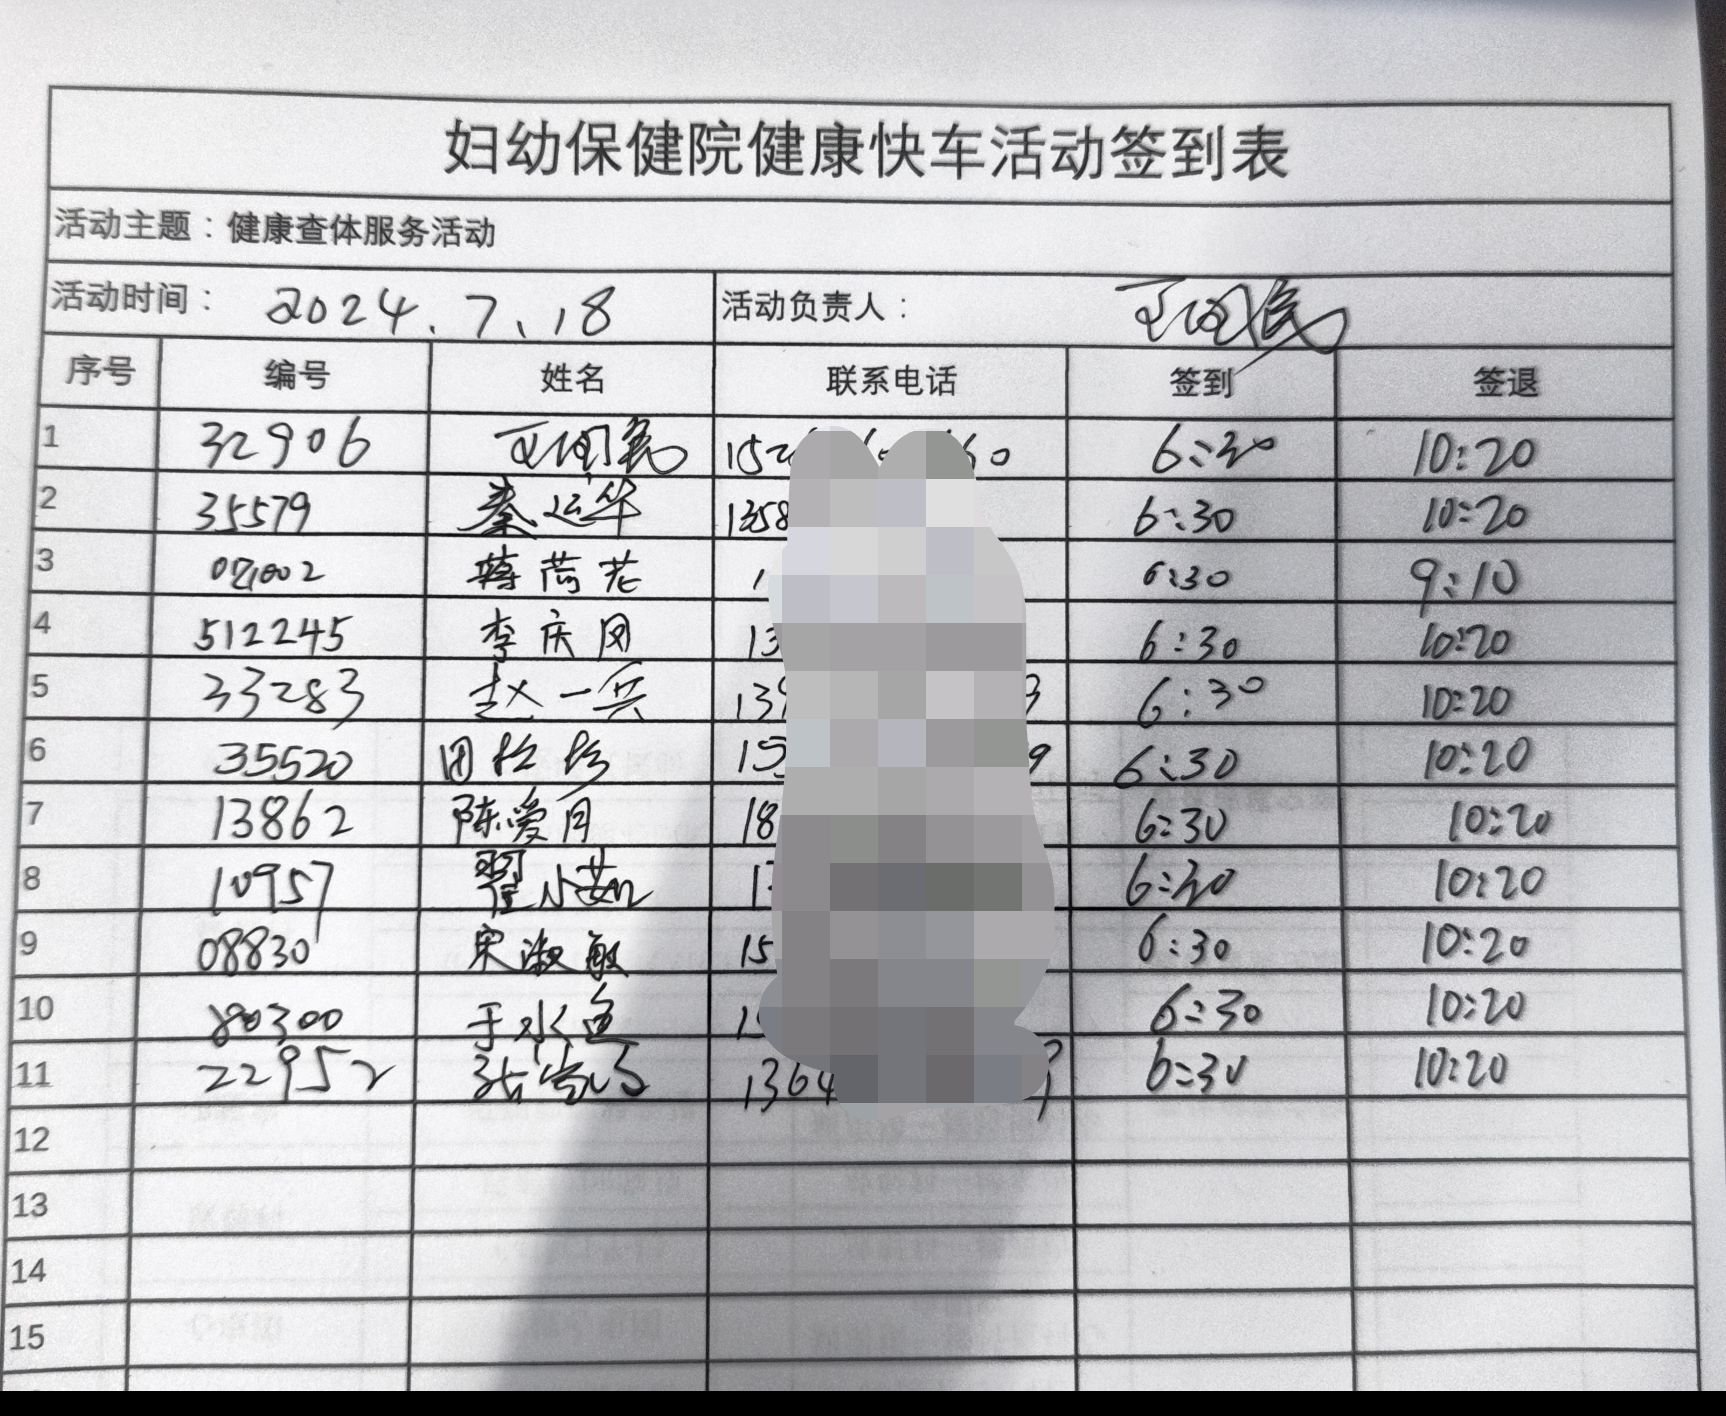 妇幼保健院健康快车活动签到表
活动主题：健康查体服务活动
活动时间： 2024.7.18 活动负责人：
序号 编号 姓名 联系电话 签到 签退
1 32906 6:30 10:20
2 35579 秦运华 1358 6:30 10:20
3 蒋茑芸 1 6:30 9:10
4 512245 李庆凤 13 6:30 10:20
5 33283 赵一兵 139 3 6:30 10:20
6 35520 田 15 9 6:30 10:20
7 13862 陈爱月 18 6:30 10:20
8 10957 翟小茹 1 6:30 10:20
9 08830 宋淑敏 15 6:30 10:20
10 80300 于水鱼 1 6:30 10:20
11 22952 张 1364 6:30 10:20
12
13
14
15